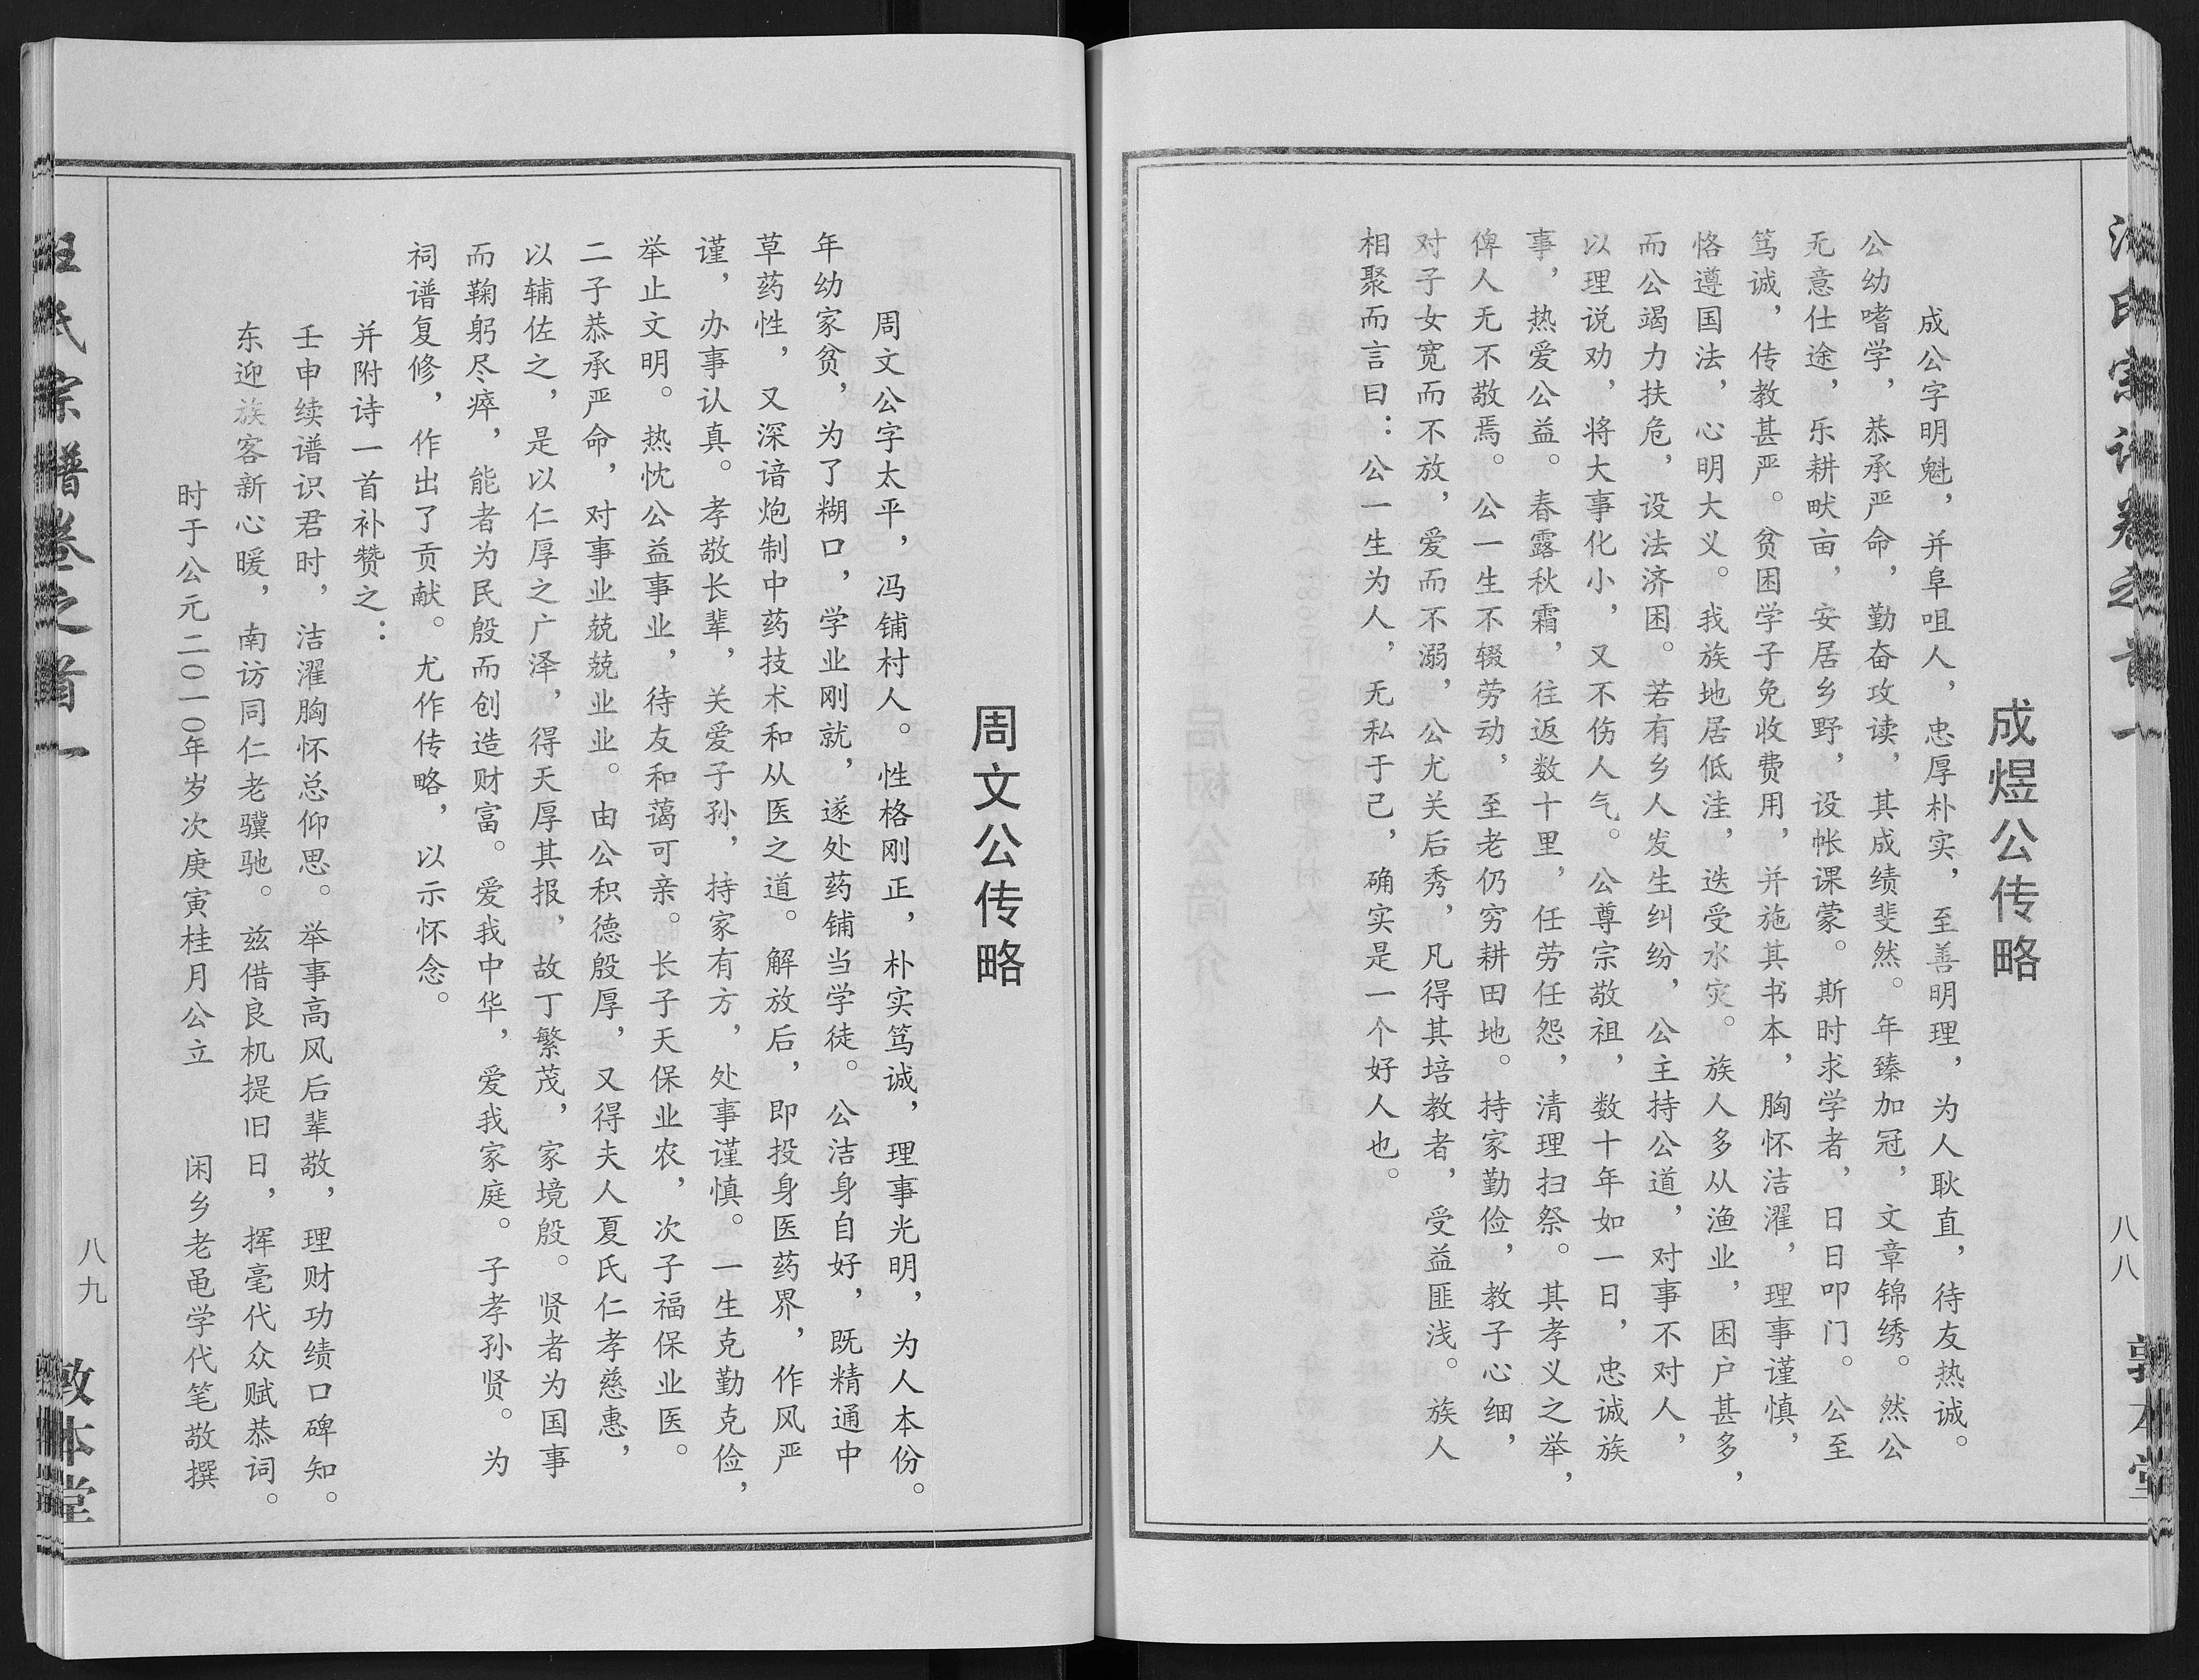 成煜公传略
成公字明魁，并阜咀人，忠厚朴实，至善明理，为人耿直，待友热诚。
公幼嗜学，恭承严命，勤奋攻读，其成绩斐然。年臻加冠，文章锦绣。然公
无意仕途，乐耕畎亩，安居乡野，设帐课蒙。斯时求学者，日日叩门。公至
笃诚，传教甚严。贫困学子免收费用，并施其书本，胸怀洁濯，理事谨慎，
恪遵国法，心明大义。我族地居低洼，迭受水灾。族人多从渔业，困户甚多，
而公竭力扶危，设法济困。若有乡人发生纠纷，公主持公道，对事不对人，
以理说劝，将大事化小，又不伤人气。公尊宗敬祖，数十年如一日，忠诚族
事，热爱公益。春露秋霜，往返数十里，任劳任怨，清理扫祭。其孝义之举，
俾人无不敬焉。公一生不辍劳动，至老仍穷耕田地。持家勤俭，教子心细，
对子女宽而不放，爱而不溺，公尤关后秀，凡得其培教者，受益匪浅。族人
相聚而言曰：公一生为人，无私于己，确实是一个好人也。
八八
周文公传略
周文公字太平，冯铺村人。性格刚正，朴实笃诚，理事光明，为人本份。
年幼家贫，为了糊口，学业刚就，遂处药铺当学徒。公洁身自好，既精通中
草药性，又深谙炮制中药技术和从医之道。解放后，即投身医药界，作风严
谨，办事认真。孝敬长辈，关爱子孙，持家有方，处事谨慎。一生克勤克俭，
举止文明。热忱公益事业，待友和蔼可亲。长子天保业农，次子福保业医。
二子恭承严命，对事业兢兢业业。由公积德殷厚，又得夫人夏氏仁孝慈惠，
以辅佐之，是以仁厚之广泽，得天厚其报，故丁繁茂，家境殷。贤者为国事
而鞠躬尽瘁，能者为民殷而创造财富。爱我中华，爱我家庭。子孝孙贤。为
祠谱复修，作出了贡献。尤作传略，以示怀念。
并附诗一首补赞之：
壬申续谱识君时，洁濯胸怀总仰思。举事高风后辈敬，理财功绩口碑知。
东迎族客新心暖，南访同仁老骥驰。兹借良机提旧日，挥毫代众赋恭词。
时于公元二〇一〇年岁次庚寅桂月公立 闲乡老黾学代笔敬撰
氏宗谱卷之首一
八九
敦本堂